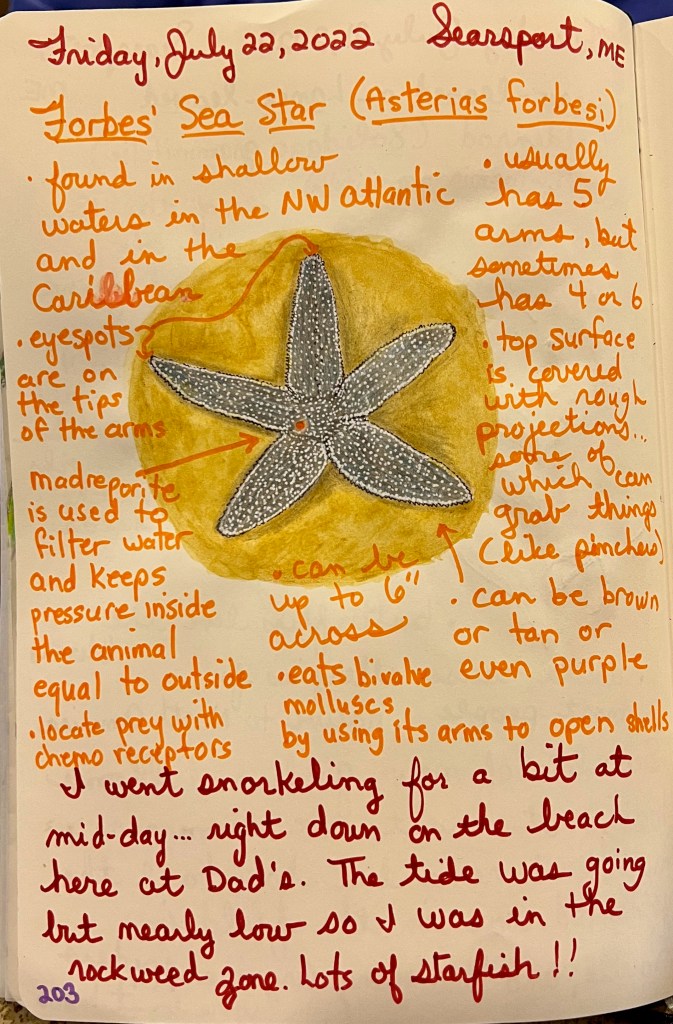 Friday, July 22, 2022 Searsport, ME
Forbes' Sea Star (Asterias forbesi)
• found in shallow
waters in the NW atlantic
and in the
Caribbean
• eyespots
are on
the tips
of the arms
madreporite
is used to
filter water
and keeps
pressure inside
the animal
equal to outside
• locate prey with
chemo receptors
• usually
has 5
arms, but
sometimes
has 4 or 6
• top surface
is covered
with rough
projections...
some of
which can
grab things
(like pinchers)
• can be
up to 6"
across
• eats bivalve
molluscs
by using its arms to open shells
• can be brown
or tan or
even purple
I went snorkeling for a bit at
mid-day... right down on the beach
here at Dad's. The tide was going
but nearly low so I was in the
rockweed zone. Lots of starfish!!
203